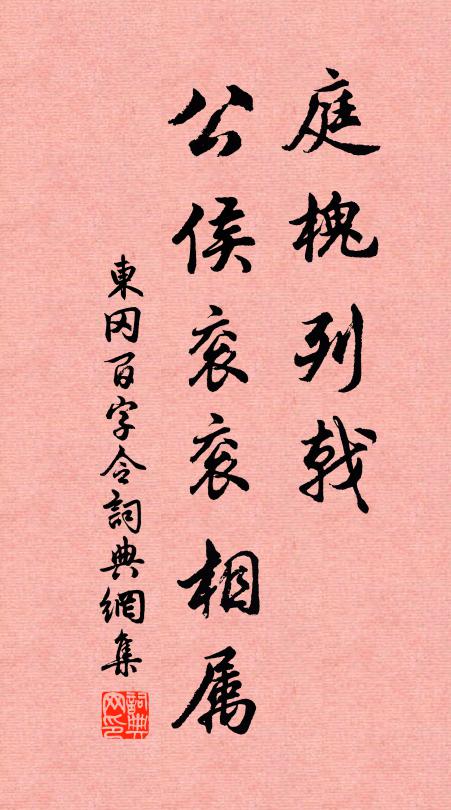 庭槐列戟
公侯衮衮相属
東冈百字令詞典網集
詞典网印